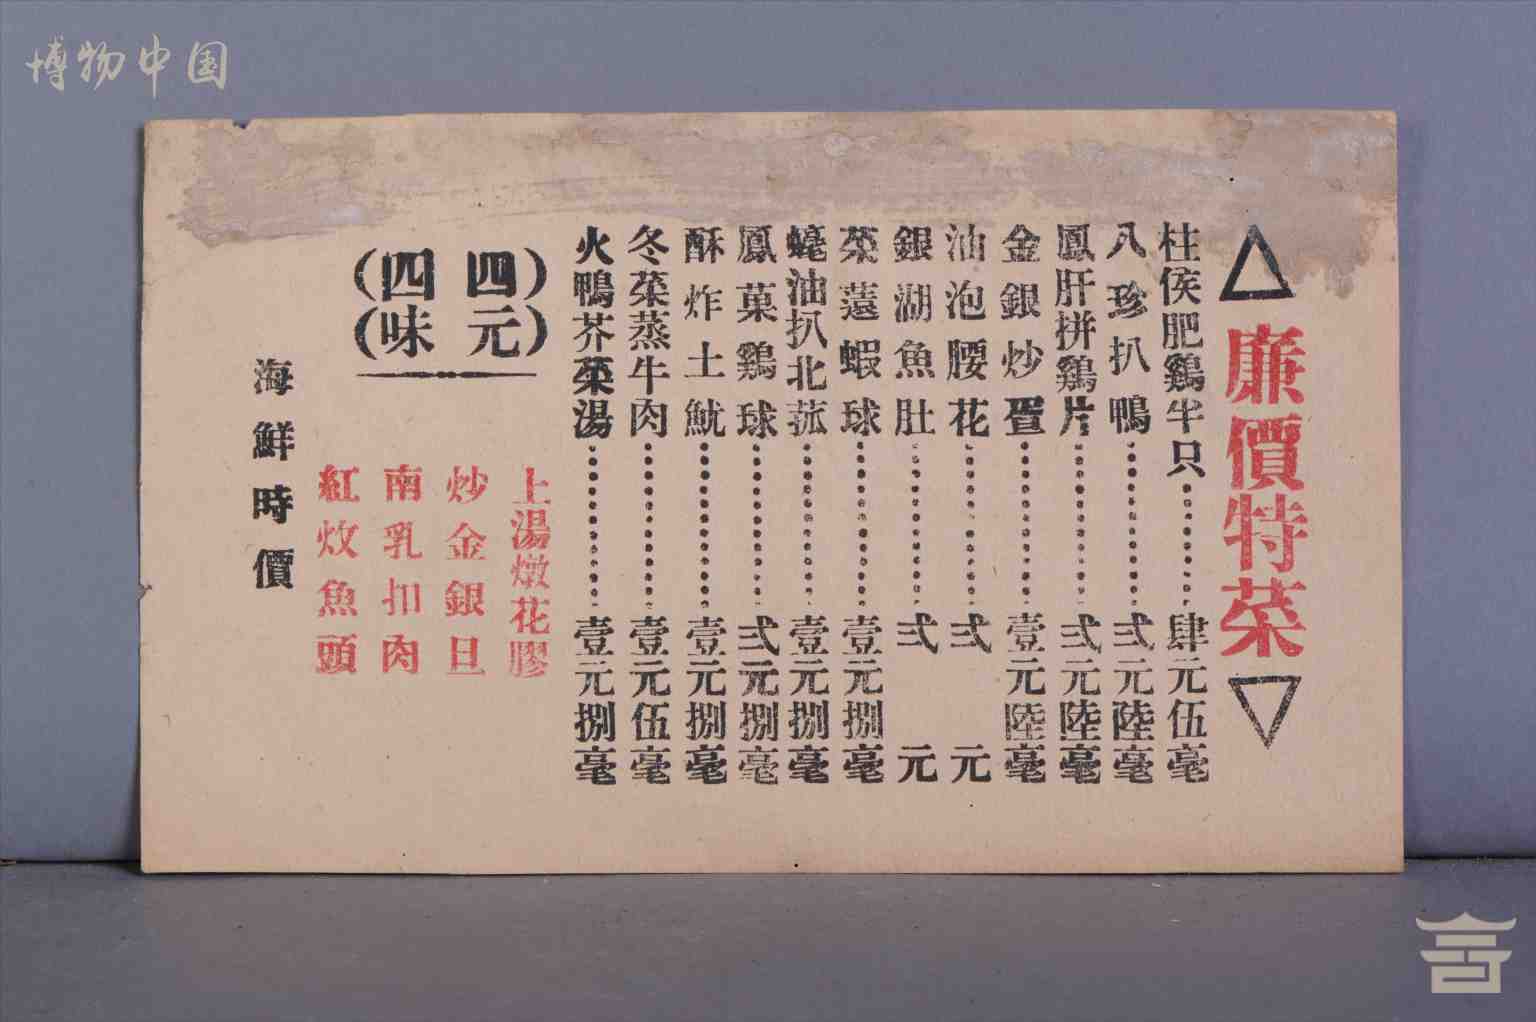 博物中国
△廉價特菜▽
柱侯肥鷄半只……肆元伍毫
八珍扒鴨……弍元陸毫
鳳肝拼鷄片……弍元陸毫
金銀炒疍……壹元陸毫
油泡腰花……弍元
銀湖魚肚……弍元
菜薳蝦球……壹元捌毫
蠔油扒北菰……壹元捌毫
鳳菓鷄球……弍元捌毫
酥炸土魷……壹元捌毫
冬菜蒸牛肉……壹元伍毫
火鴨芥菜湯……壹元捌毫
(四元)
(四味)
上湯燉花膠
炒金銀旦
南乳扣肉
紅炆魚頭
海鮮時價